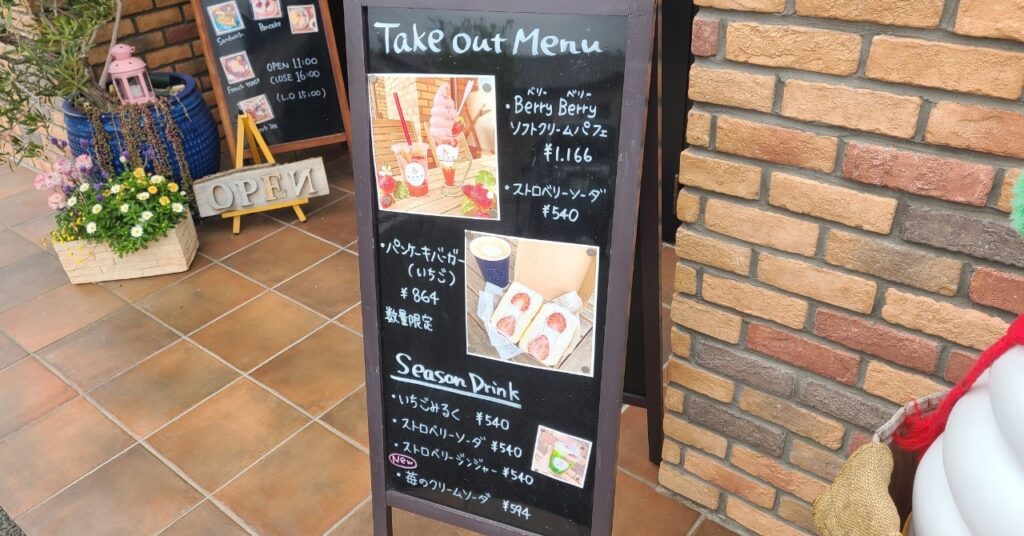 Sandwich
Pancake
French toast
OPEN 11:00
CLOSE 16:00
(L.O 15:00)
OPEN
Take out Menu
ベリー ベリー
・Berry Berry
ソフトクリームパフェ
¥1.166
・ストロベリーソーダ
¥540
・パンケーキバーガー
(いちご)
¥864
数量限定
Season Drink
・いちごみるく ¥540
・ストロベリーソーダ ¥540
・ストロベリージンジャー ¥540
New
・苺のクリームソーダ ¥594